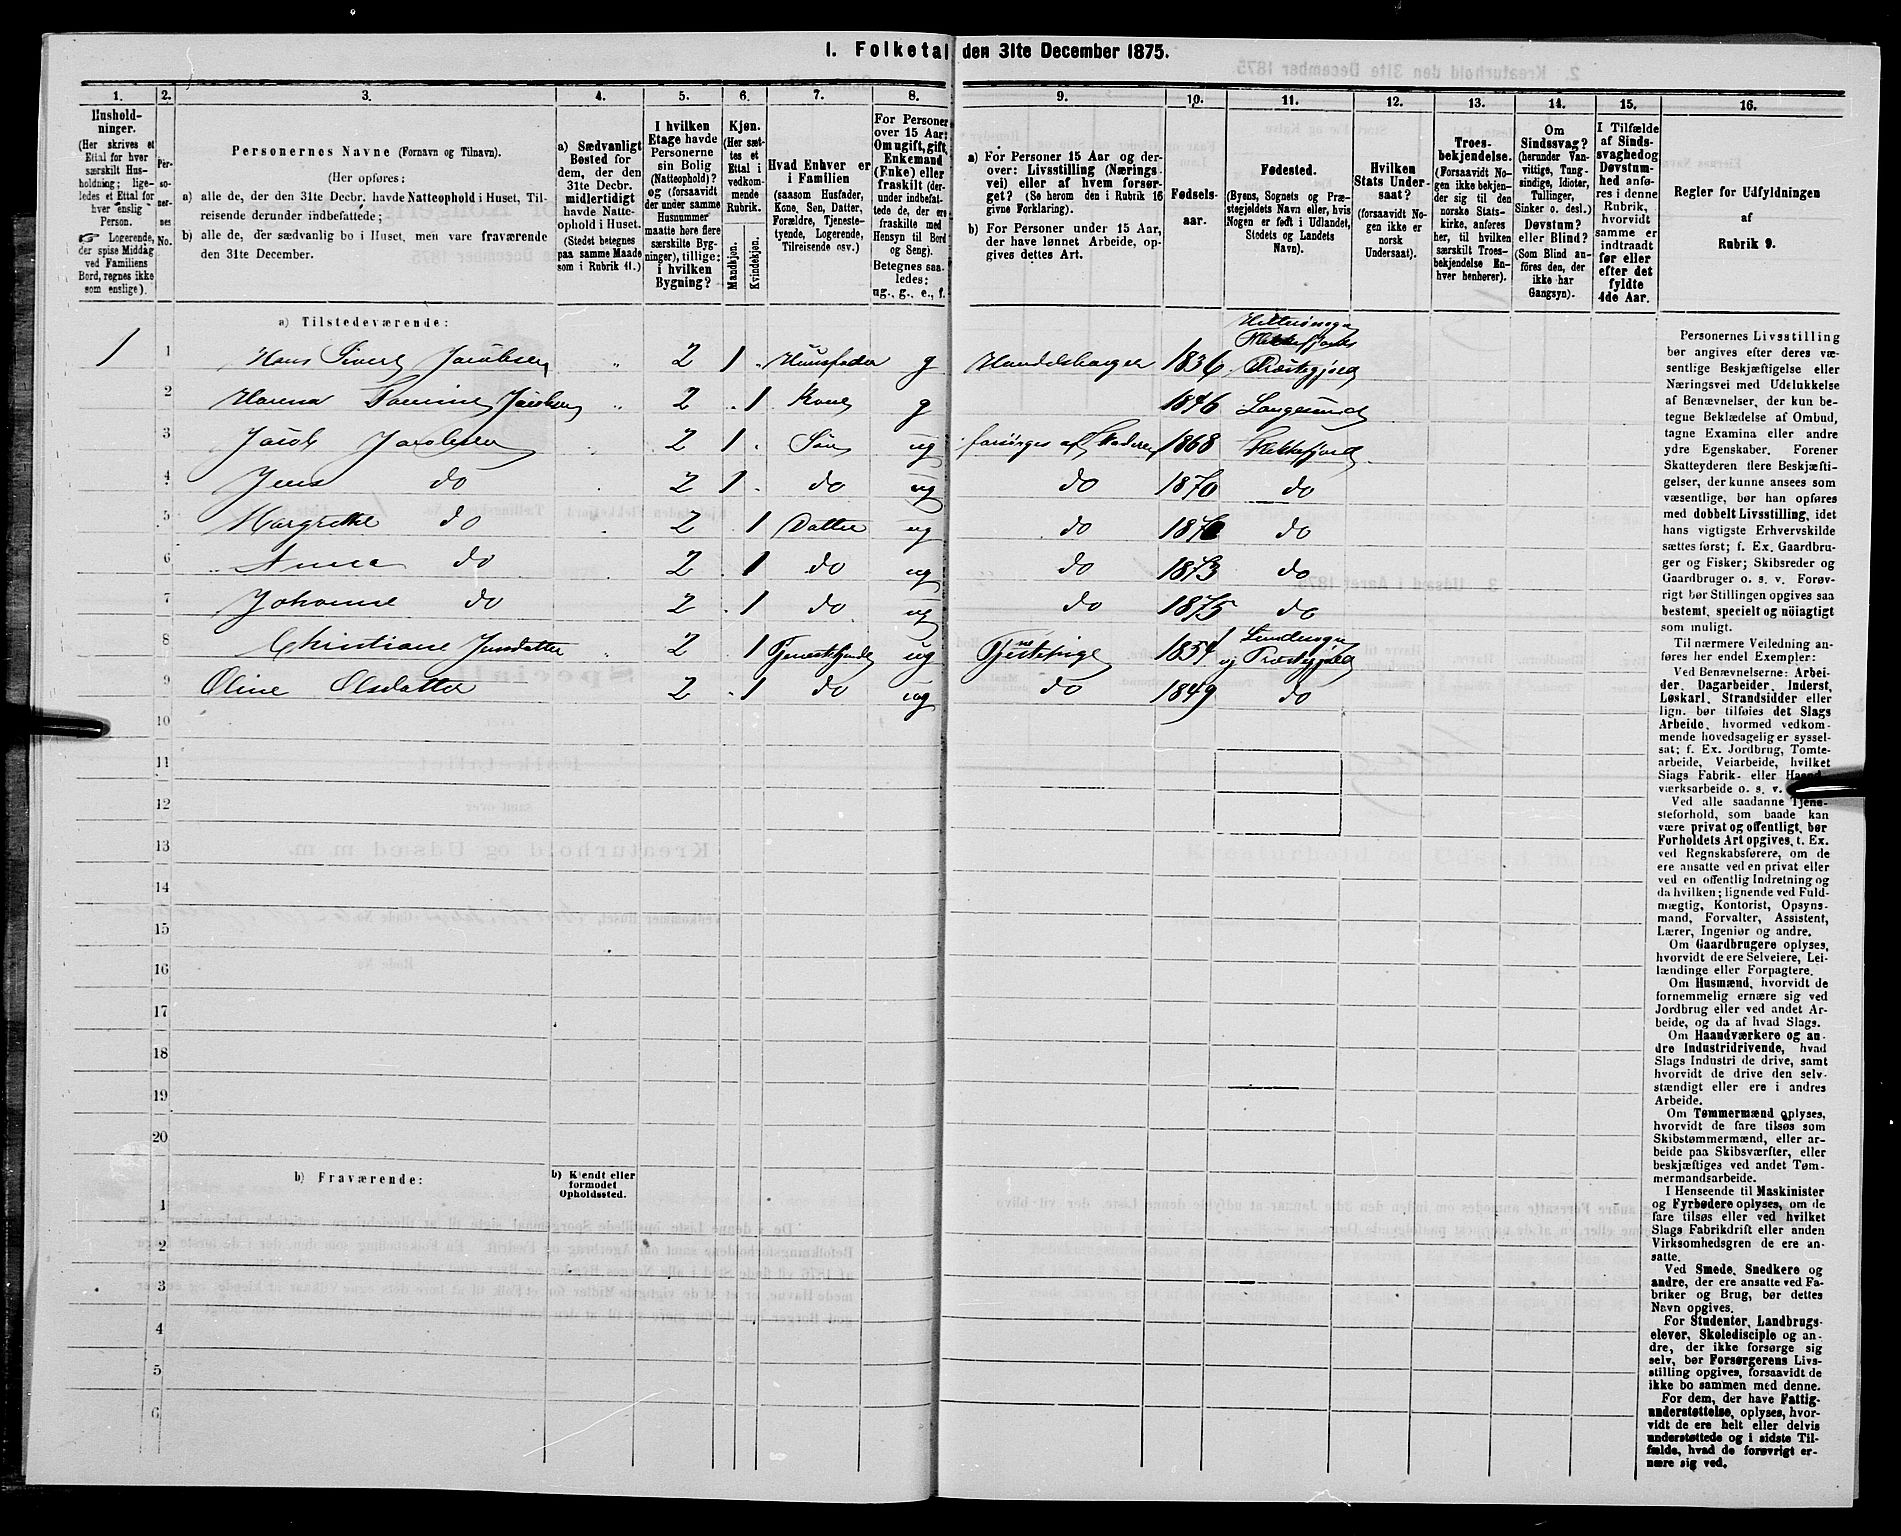 1. Folketal den 31te December 1875.
1. 2. 3. 4. 5. 6. 7. 8. 9. 10. 11. 12. 13. 14. 15. 16.
Husholdninger.
(Her skrives et
Ettal for hver
særskilt Husholdning;
ligeledes et Ettal for
hver enslig
Person.
Logerende,
der spise Middag
ved Familiens
Bord, regnes ikke
som enslige).
Personernes No.
Personernes Navne (Fornavn og Tilnavn).
(Her opføres:
a) alle de, der den 31te Decbr. havde Natteophold i Huset, Tilreisende derunder indbefattede;
b) alle de, der sædvanlig bo i Huset, men vare fraværende
den 31te December.
a) Sædvanligt
Bosted for
dem, der den
31te Decbr.
midlertidigt
havde Natteophold i Huset.
(Stedet betegnes
paa samme Maade
som i Rubrik 11.)
I hvilken
Etage havde
Personerne
sin Bolig
(Natteophold)?
og (forsaavidt
der under samme
Husnummer
maatte høre flere
særskilte Bygninger), tillige:
i hvilken
Bygning?
Kjøn.
(Her sættes et
Ettal i
vedkommende
Rubrik.
Mandkjøn.
Kvindekjøn.
Hvad Enhver er
i Familien
(saasom Husfader,
Kone, Søn, Datter,
Forældre, Tjenestetyende, Logerende,
Tilreisende osv.)
For Personer
over 15 Aar:
Om ugift, gift,
Enkemand
(Enke) eller
fraskilt (derunder indbefattede de, der ere
fraskilte med
Hensyn til Bord
og Seng).
Betegnes saaledes:
ug., g., e., f.
a) For Personer 15 Aar og derover: Livsstilling (Næringsvei) eller af hvem forsørget? (Se herom den i Rubrik 16
givne Forklaring).
b) For Personer under 15 Aar,
der have lønnet Arbeide, opgives dettes Art.
Fødselsaar.
Fødested.
(Byens, Sognets og Præstegjeldets Navn eller, hvis
Nogen er født i Udlandet,
Stedets og Landets
Navn).
Hvilken
Stats Undersaat?
(forsaavidt Nogen ikke er
norsk
Undersaat).
Troesbekjendelse.
(Forsaavidt Nogen ikke bekjender sig til den
norske Statskirke, anføres
her, til hvilken
særskilt Troesbekjendelse Enhver henhører).
Om
Sindssvag?
(herunder Vanvittige, Tungsindige, Idioter,
Tullinger,
Sinker o. desl.)
Døvstum?
eller Blind?
(Som Blind anføres den, der
ikke har
Gangsyn).
I Tilfælde
af Sindssvaghed og
Døvstumhed anføres i denne
Rubrik,
hvorvidt
samme er
indtraadt
før eller
efter det
fyldte
4de Aar.
Regler for Udfyldningen
af
Rubrik 9.
a) Tilstedeværende:
1 1 Hans Sivert Jacobsen " 2 1 " Huusfader g Handelsborger 1836 Hitterøsogn Flekkefjords Præstegjeld
2 Jacobsen " 2 " 1 Kone g 1846 Langesund
3 Jacob Jacobsen 2 1 " Søn ug forsørges af Faderen 1868 Flekkefjord
4 Jens do 2 1 " do ug do 1870 do
5 Margrethe do 2 1 Datter ug do do
6 Anna do 2 1 do ug do 1873 do
7 Johanne do 2 1 do ug do 1875 do
8 Christiane Jensdatter 2 1 Tjenestetyende ug Tjenestepige 1854 og Præstegjeld
9 Oline Olsdatter 2 " 1 do ug do 1849 do
10
11
12
13
14
15
16
17
18
19
20
b) Fraværende:
b) Kjendt eller
formodet
Opholdssted.
1
2
3
4
5
6
Personernes Livsstilling
bør angives efter deres væsentlige Beskjæftigelse eller
Næringsvei med Udelukkelse
af Benævnelser, der kun betegne Beklædelse af Ombud,
tagne Examina eller andre
ydre Egenskaber. Forener
Skatteyderen flere Beskjæftigelser, der kunne ansees som
væsentlige, bør han opføres
med dobbelt Livsstilling, idet
hans vigtigste Erhvervskilde
sættes først; f. Ex. Gaardbruger og Fisker; Skibsreder og
Gaardbruger o. s. v. Forøvrigt bør Stillingen opgives saa
bestemt, specielt og nöiagtigt
som muligt.
Til nærmere Veiledning anføres her endel Exempler:
Ved Benævnelserne: Arbeider, Dagarbeider, Inderst,
Løskarl, Strandsidder eller
lign. bør tilføies det Slags
Arbeide, hvormed vedkommende hovedsagelig er sysselsat; f. Ex. Jordbrug, Tomtearbeide, Veiarbeide, hvilket
Slags Fabrik- eller Haandværksarbeide o. s. v.
Ved alle saadanne Tjenesteforhold, som baade kan
være privat og offentligt, bør
Forholdets Art opgives, t. Ex.
ved Regnskabsførere, om de
ere ansatte ved en privat eller
ved en offentlig Indretning og
da hvilken; lignende ved Fuldmægtig, Kontorist, Opsynsmand, Forvalter, Assistent,
Lærer, Ingeniør og andre.
Om Gaardbrugere oplyses,
hvorvidt de ere Selveiere, Leilændinge eller Forpagtere.
Om Husmænd, hvorvidt de
fornemmelig ernære sig ved
Jordbrug eller ved andet Arbeide, og da af hvad Slags.
Om Haandværkere og andre Industridrivende, hvad
Slags Industri de drive, samt
hvorvidt de drive den selvstændigt eller ere i andres
Arbeide.
Om Tømmermænd oplyses,
hvorvidt de fare tilsøs som
Skibstømmermænd, eller arbeide paa Skibsværfter, eller
beskjæftiges ved andet Tømmermandsarbeide.
I Henseende til Maskinister
og Fyrbødere oplyses, om de
fare tilsøs eller ved hvilket
Slags Fabrikdrift eller anden
Virksomhedsgren de ere ansatte.
Ved Smede, Snedkere og
andre, der ere ansatte ved Fabriker og Brug, bør dettes
Navn opgives.
For Studenter, Landbrugselever, Skoledisciple og andre, der ikke forsørge sig
selv, bør Forsørgerens Livsstilling opgives, forsaavidt de
ikke bo sammen med denne.
For dem, der have Fattigunderstøttelse, oplyses, hvorvidt de ere helt eller delvis
understøttede og i sidste Tilfælde, hvad de forøvrigt ernære sig ved.